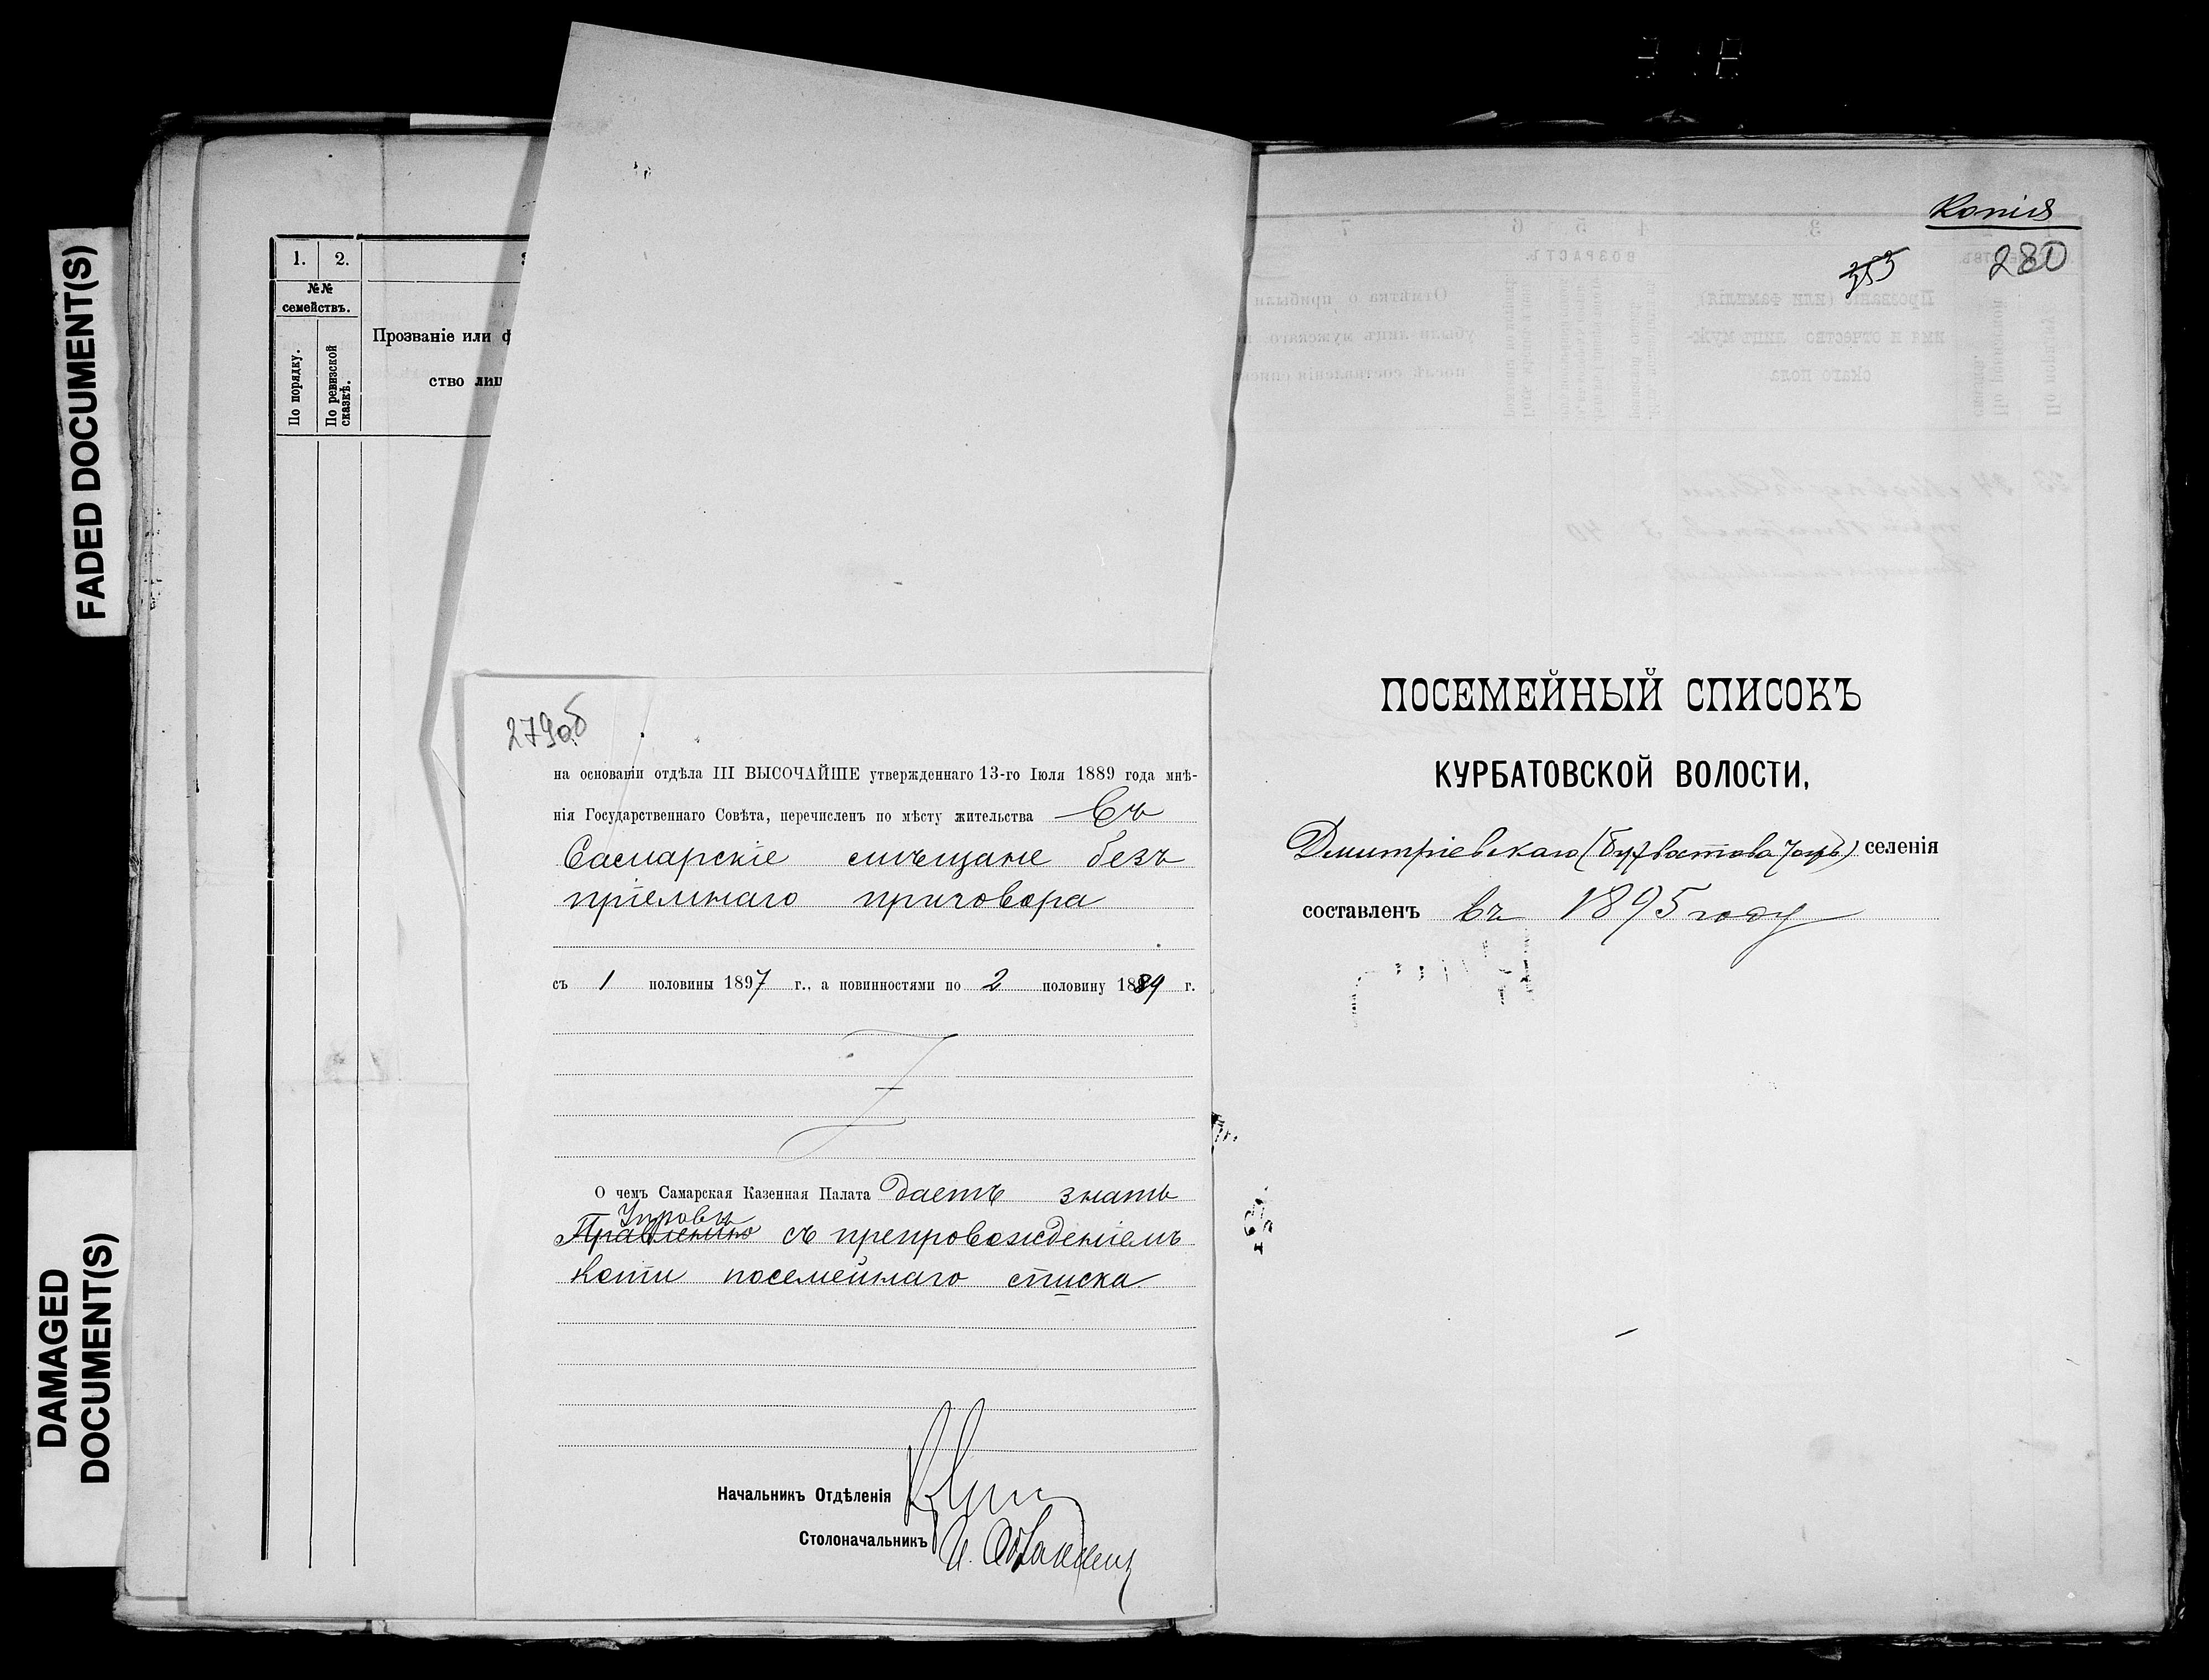 FADED DOCUMENT(S)
DAMAGED
DOCUMENT(S)
1. 2.
№№
семействъ.
По порядку.
По ревизской
сказкѣ.
Прозваніе или
ство
279об
на основаніи отдѣла III ВЫСОЧАЙШЕ утвержденнаго 13-го Іюля 1889 года мнѣ-
нія Государственнаго Совѣта, перечисленъ по мѣсту жительства въ
Самарскіе мѣщане безъ
пріемнаго приговора
съ 1 половины 1897 г., а повинностями по 2 половину 1889 г.
О чемъ Самарская Казенная Палата даетъ знать
Управѣ
Правленію съ препровожденіемъ
копіи посемейнаго списка
Начальникъ Отдѣленія
Столоначальникъ
Копія
353 280
ПОСЕМЕЙНЫЙ СПИСОКЪ
КУРБАТОВСКОЙ ВОЛОСТИ,
Дмитріевскаго селенія
составленъ въ 1895 году